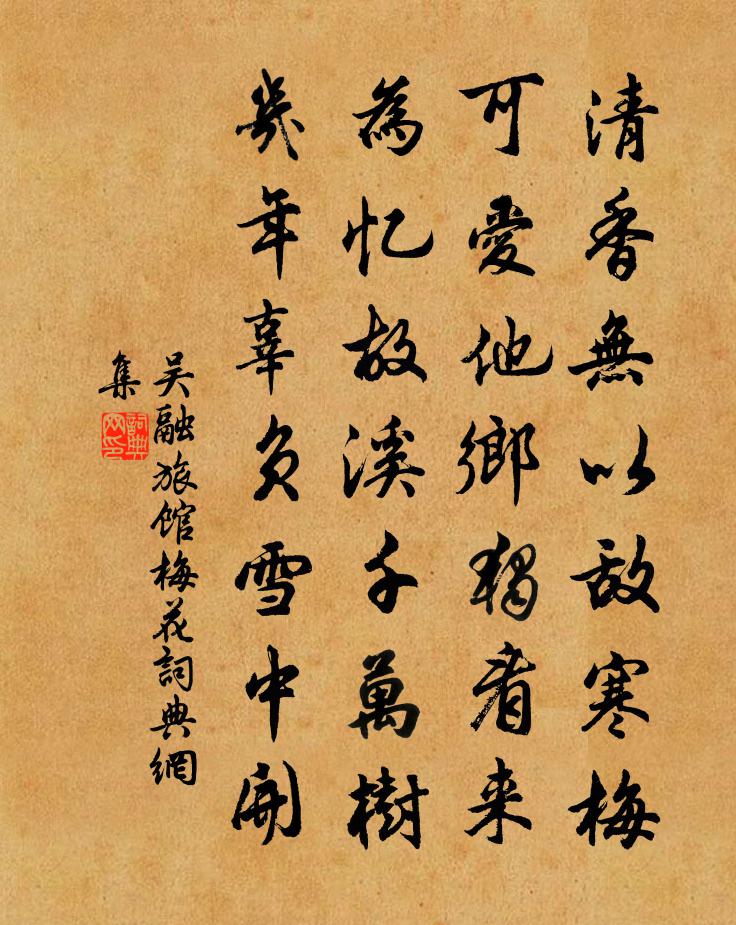 清香無以敵寒梅
可愛他鄉獨看来
為忆故溪千萬樹
幾年辜负雪中開
吴融旅馆梅花詞典網
集
詞典
网印